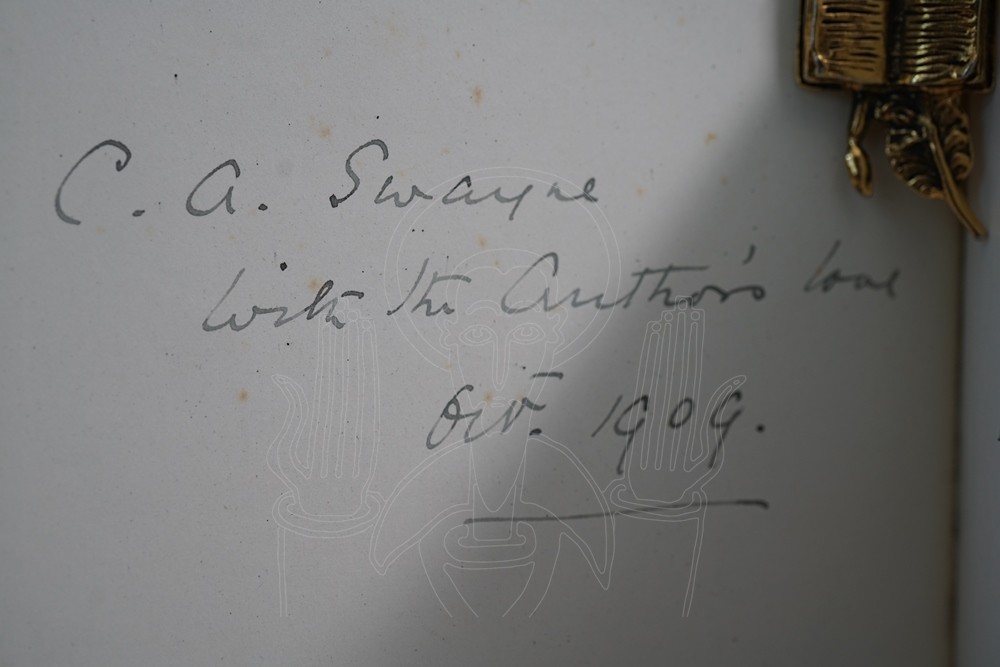 C. A. Swayne
with the Author's love
Oct. 1909.